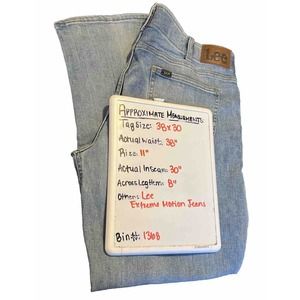 Lee
APPROXIMATE MEASUREMENTS
Tag Size: 38x30
Actual Waist: 38"
Rise: 11"
Actual Inseam: 30"
Across Leg Hem: 8"
Others: Lee
Extreme Motion Jeans
Bin #: 1368